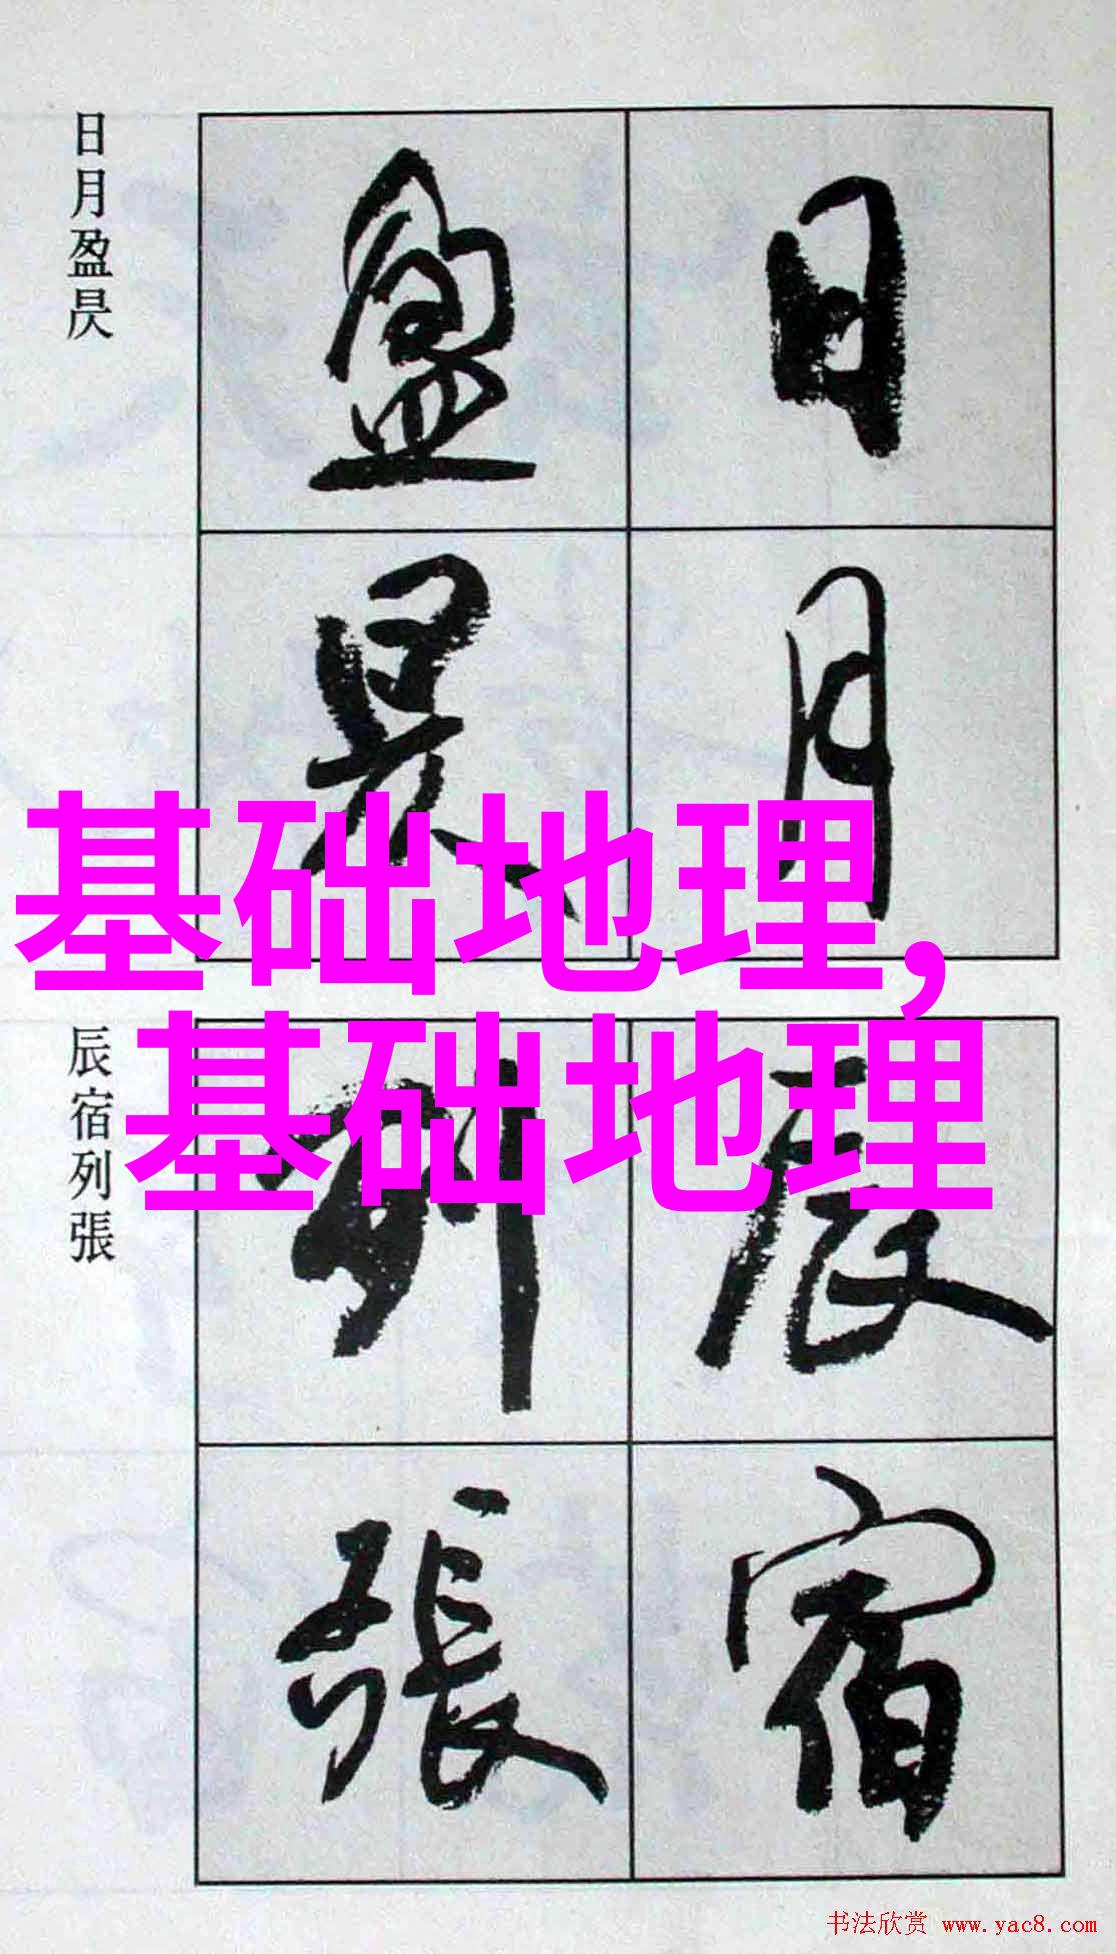 日月盈昃
日月
盈昃
基础地理,
基础地理
辰宿列張
辰宿
列張
书法欣赏 www.yac8.com